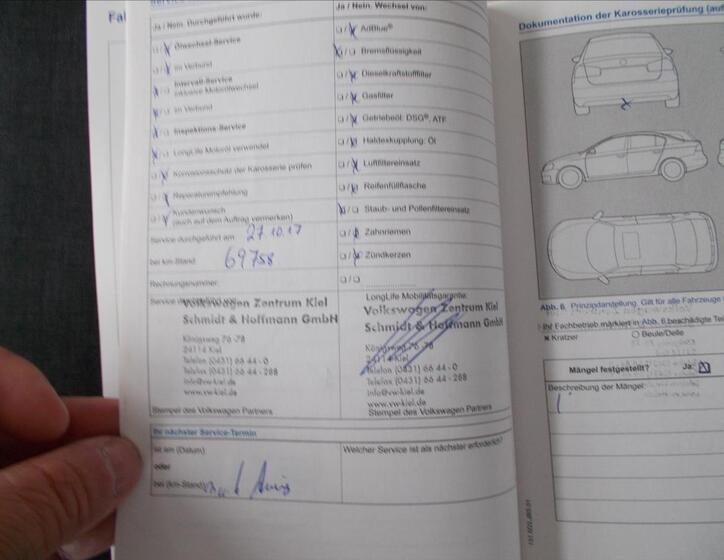 Ja / Nein: Durchgeführt wurde:
Ölwechsel-Service
im Verbund
Intervall-Service
inklusive Motorölwechsel
im Verbund
Inspektions-Service
LongLife Motoröl verwendet
Korrosionsschutz der Karosserie prüfen
Reparaturempfehlung
Kundenwunsch
(auch auf dem Auftrag vermerken)
Service durchgeführt am: 27.10.17
bei km-Stand: 69758
Rechnungsnummer:
Volkswagen Zentrum Kiel
Schmidt & Hoffmann GmbH
Königsweg 76-78
24114 Kiel
Telefon (0431) 66 44-0
Telefax (0431) 66 44-288
info@vw-kiel.de
www.vw-kiel.de
Stempel des Volkswagen Partners
Ja / Nein: Wechsel von:
AdBlue®
Bremsflüssigkeit
Dieselkraftstofffilter
Gasfilter
Getriebeöl: DSG®, ATF
Haldexkupplung: Öl
Luftfiltereinsatz
Reifenfüllflasche
Staub- und Pollenfiltereinsatz
Zahnriemen
Zündkerzen
LongLife Mobilitätsgarantie:
Volkswagen Zentrum Kiel
Schmidt & Hoffmann GmbH
Königsweg 76-78
24114 Kiel
Telefon (0431) 66 44-0
Telefax (0431) 66 44-288
info@vw-kiel.de
www.vw-kiel.de
Stempel des Volkswagen Partners
Ihr nächster Service-Termin
ist am (Datum)
oder
bei (km-Stand)
Welcher Service ist als nächster erforderlich?
Dokumentation der Karosserieprüfung
Abb. 6 Prinzipdarstellung. Gilt für alle Fahrzeuge
Ihr Fachbetrieb markiert in Abb. 6 beschädigte
Kratzer
Beule/Delle
Mängel festgestellt? Ja:
Beschreibung der Mängel: